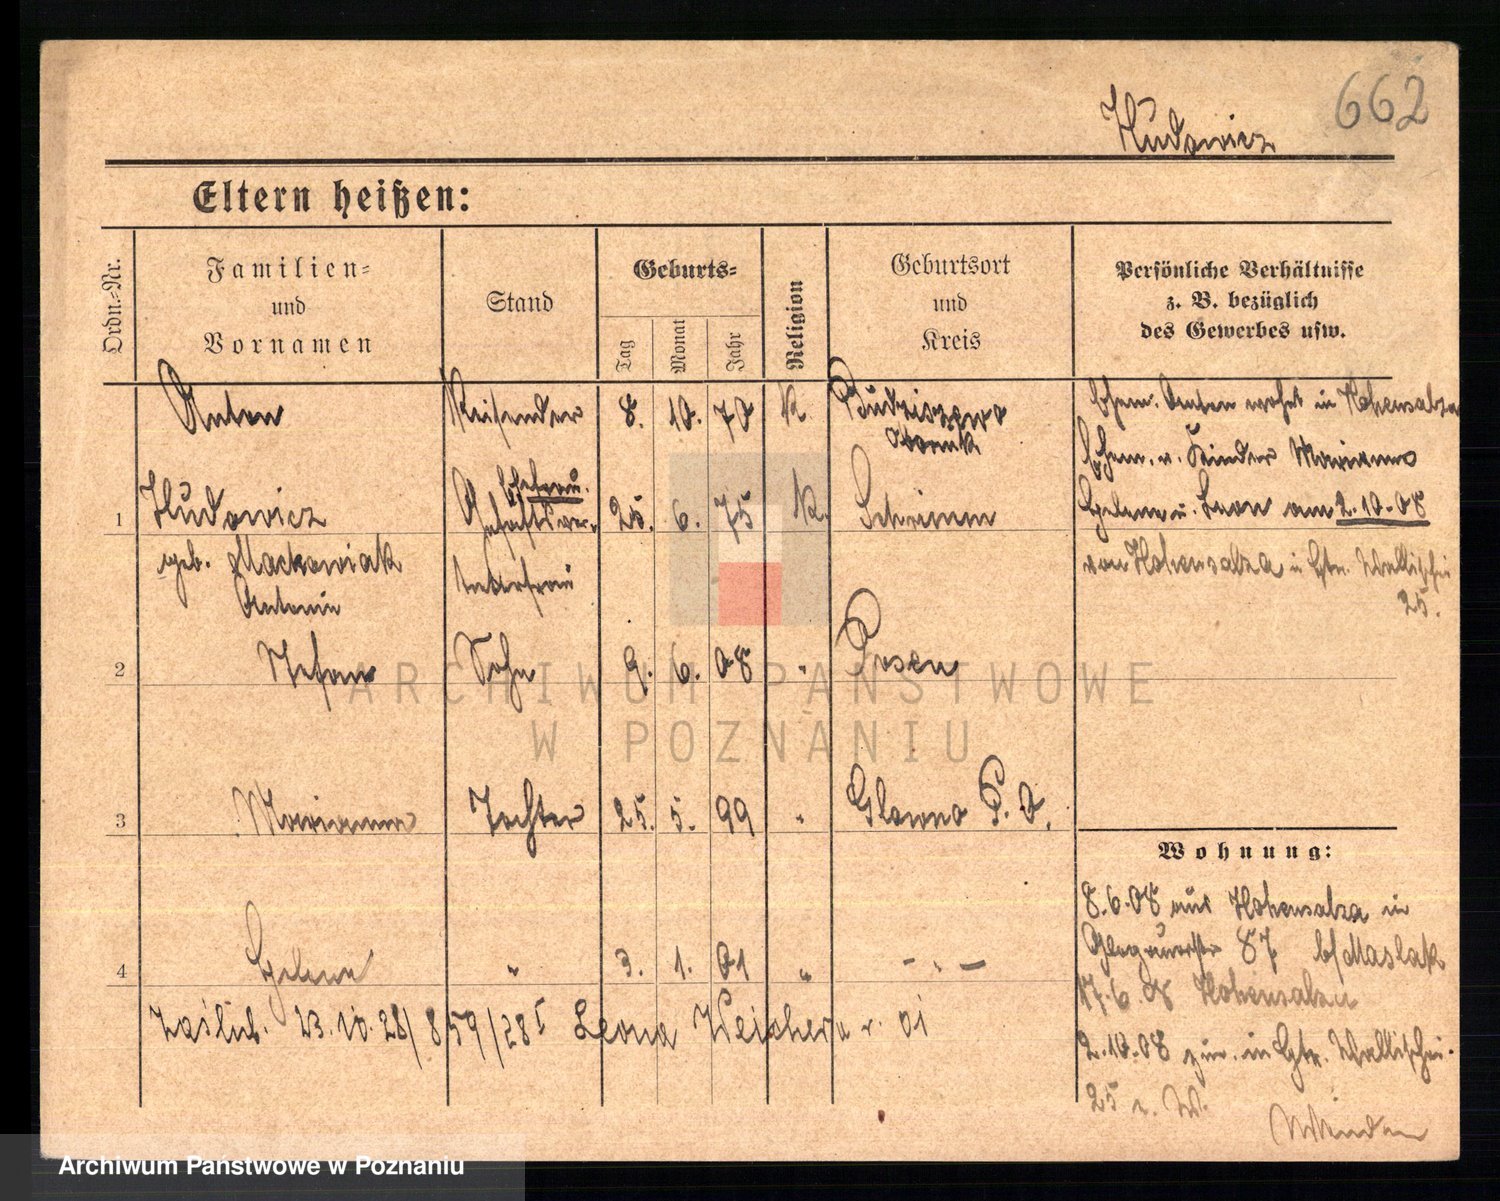 662
Hudowicz
Eltern heißen:
Ordn.-Nr.
Familien-
und
Vornamen
Stand
Geburts-
Tag
Monat
Jahr
Religion
Geburtsort
und
Kreis
Persönliche Verhältnisse
z. B. bezüglich
des Gewerbes usw.
Anton Reisender 8. 10. 70 K Budziszewo
Obornik
Ehem. Anton wohnt in Hohensalza
Ehefrau.
1 Hudowicz 25. 6. 75 K. Schrimm
geb. Mackowiak
Antonie
Ehem. u. Kinder Marianna
Helene u. Leon am 2.10.08
von Hohensalza in Wallischei
25.
2 Stefan Sohn 9. 6. 08 " Posen
3 Marianna Tochter 25. 5. 99 " Glowno P. O.
4 Helene " 3. 1. 01 " - " -
Zaślub. 23.10.28/859/28 Leona Weichert r. 01
Wohnung:
8.6.08 aus Hohensalza in
Glogauerstr 87 b/Maslak
17.6.08 Hohensalza
2.10.08 zur. in Wallischei.
25
ARCHIWUM PAŃSTWOWE
W POZNANIU
Archiwum Państwowe w Poznaniu